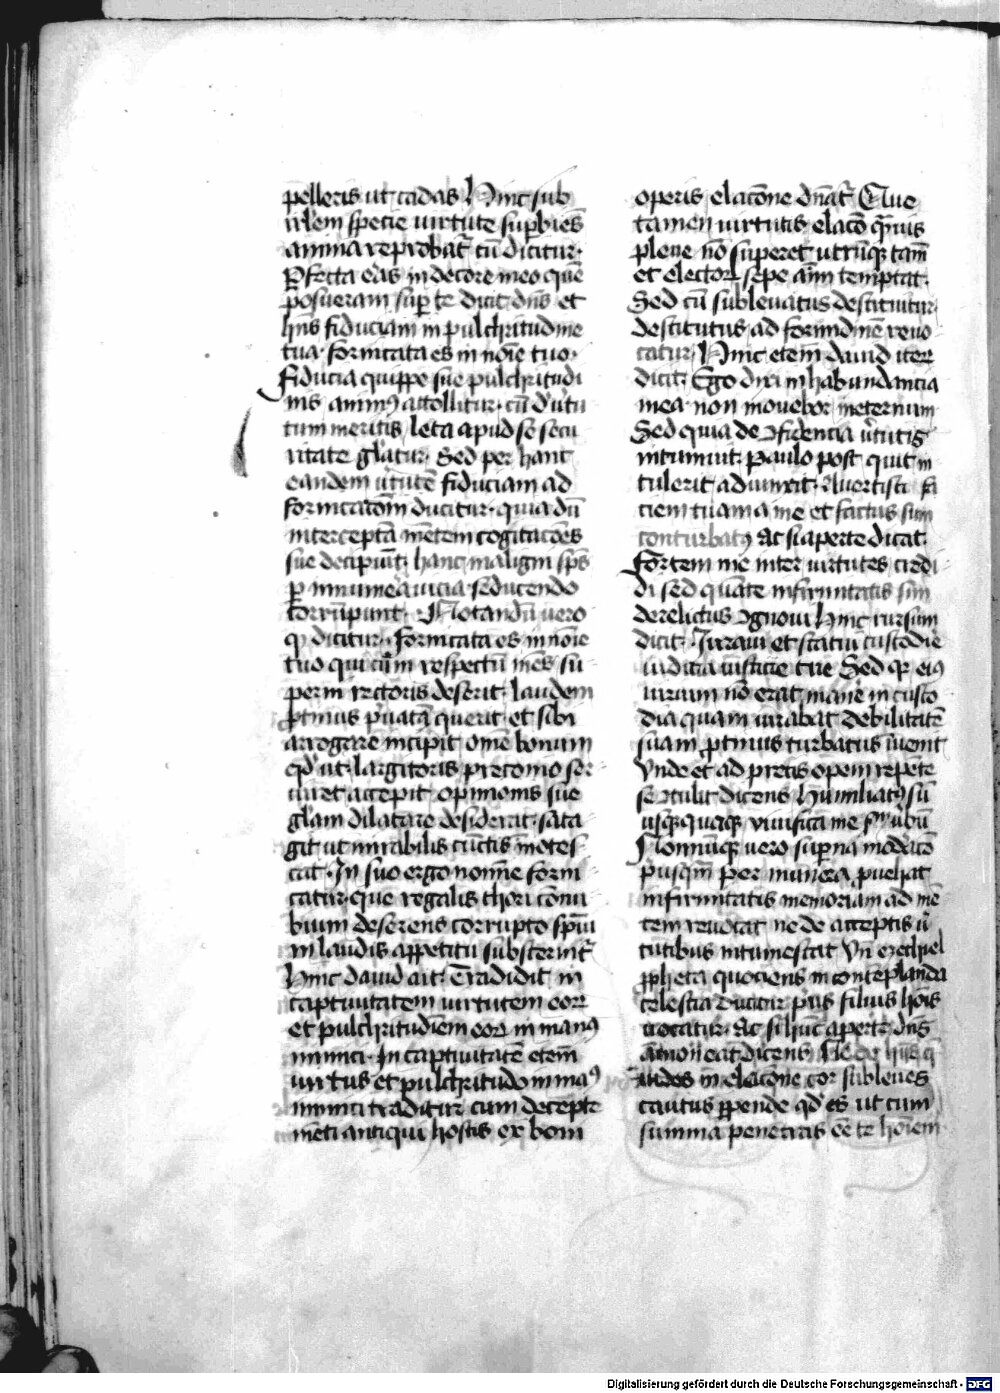 pelleris ut cadas Hinc sub
irlem specie uirtute supbies
anima reprobat̾ cū dicitur·
Pfecta eras in decore meo quē
posueram sup te dicit dn̄s et
hn̄s fiduciam in pulchritudine
tua· fornicata es in noīe tuo·
Fiducia quippe sue pulchritudi
nis animꝰ attollitur· cū d' uirtu
tum meritis leta apud se secu
ritate gl'atur· Sed per hanc
eandem ūtutē fiduciam ad
fornicatōm ducitur· quia dū
interceptā mētem cogitacōes
sue decipiūt· hanc maligni sp̄s
ꝑ innumera uicia seducendo
corrūpunt· Notandū uero
ꝙ dicitur· fornicata es in noīe
tuo qui cū m respectū mēs su
perni rectoris deserit· laudem
ꝓtinus p̄uatā querit· et sibi
arrogare incipit om̄e bonum
qd' ut largitoris preconio ser
uiret accepit· opinionis sue
gl'am dilatare desiderat· sata
git ut mirabilis cūctis īnotes
cat· In suo ergo nomīe forni
catur· que regalis thori cōnu
bium deserens corrupto sp̄ui
in laudis appetitu substernit̾
Hinc dauid ait· Tradidit in
captiuitatem uirtutem eoꝝ
et pulchritudīem eoꝝ in manꝰ
inimici· In captiuitatē etem̄
uirtus et pulchritudo in maꝰ
inimici traditur cum decepte
mēti antiqui hostis ex boni
operis elacōne dn̄at̾ Que
tamen uirtutis elacō q̄uis
plene nō superet utrūqꝫ tam̄
et electoꝝ sepe aīm temptat·
Sed cū subleuatus destituitur
destitutus ad formidinē reuo
catur· Hinc etem̄ dauid iteꝝ
dicit· Ego dixi in habundancia
mea· non mouebor in eternum
Sed quia de ↄfidencia ūtutis
intumuit· paulo post quit in
tulerit adiunxit· Auertisti fa
ciem tuam a me et factus sum
conturbatꝰ Ac si aperte dicat·
Fortem me inter uirtutes credi
di sed quāte infirmitatis sim
derelictus ↄgnoui Hinc rursum
dicit· Iuraui et statui custodie
iudicia iusticie tue Sed qꝛ eiꝰ
uirium nō erat manē in custo
dia quam iurabat debilitatē
suam ꝓtinus turbatus īuenit
Vnde et ad precis opem repēte
se ↄtulit dicens Humiliatꝰ sū
usqꝫquaqꝫ uiuifica me scd'm ūbū
Nonnūqꝫ uero supna modacō
priusq̄m per munera ꝓuehat
infirmitatis memoriam ad mē
tem reuocat ne de acceptis ū
tutibus intumescat Vn̄ ezechiel
ꝓpheta quociens in cōtēplanda
celestia ducitur p̄us filius hoīs
uocatur· Ac si hūc aperte dn̄s
āmoneat dicens Ne de hiis q̄
uides in elacōne cor subleues
cautus ꝑpende qd' es ut cum
summa penetras eē te hoīem